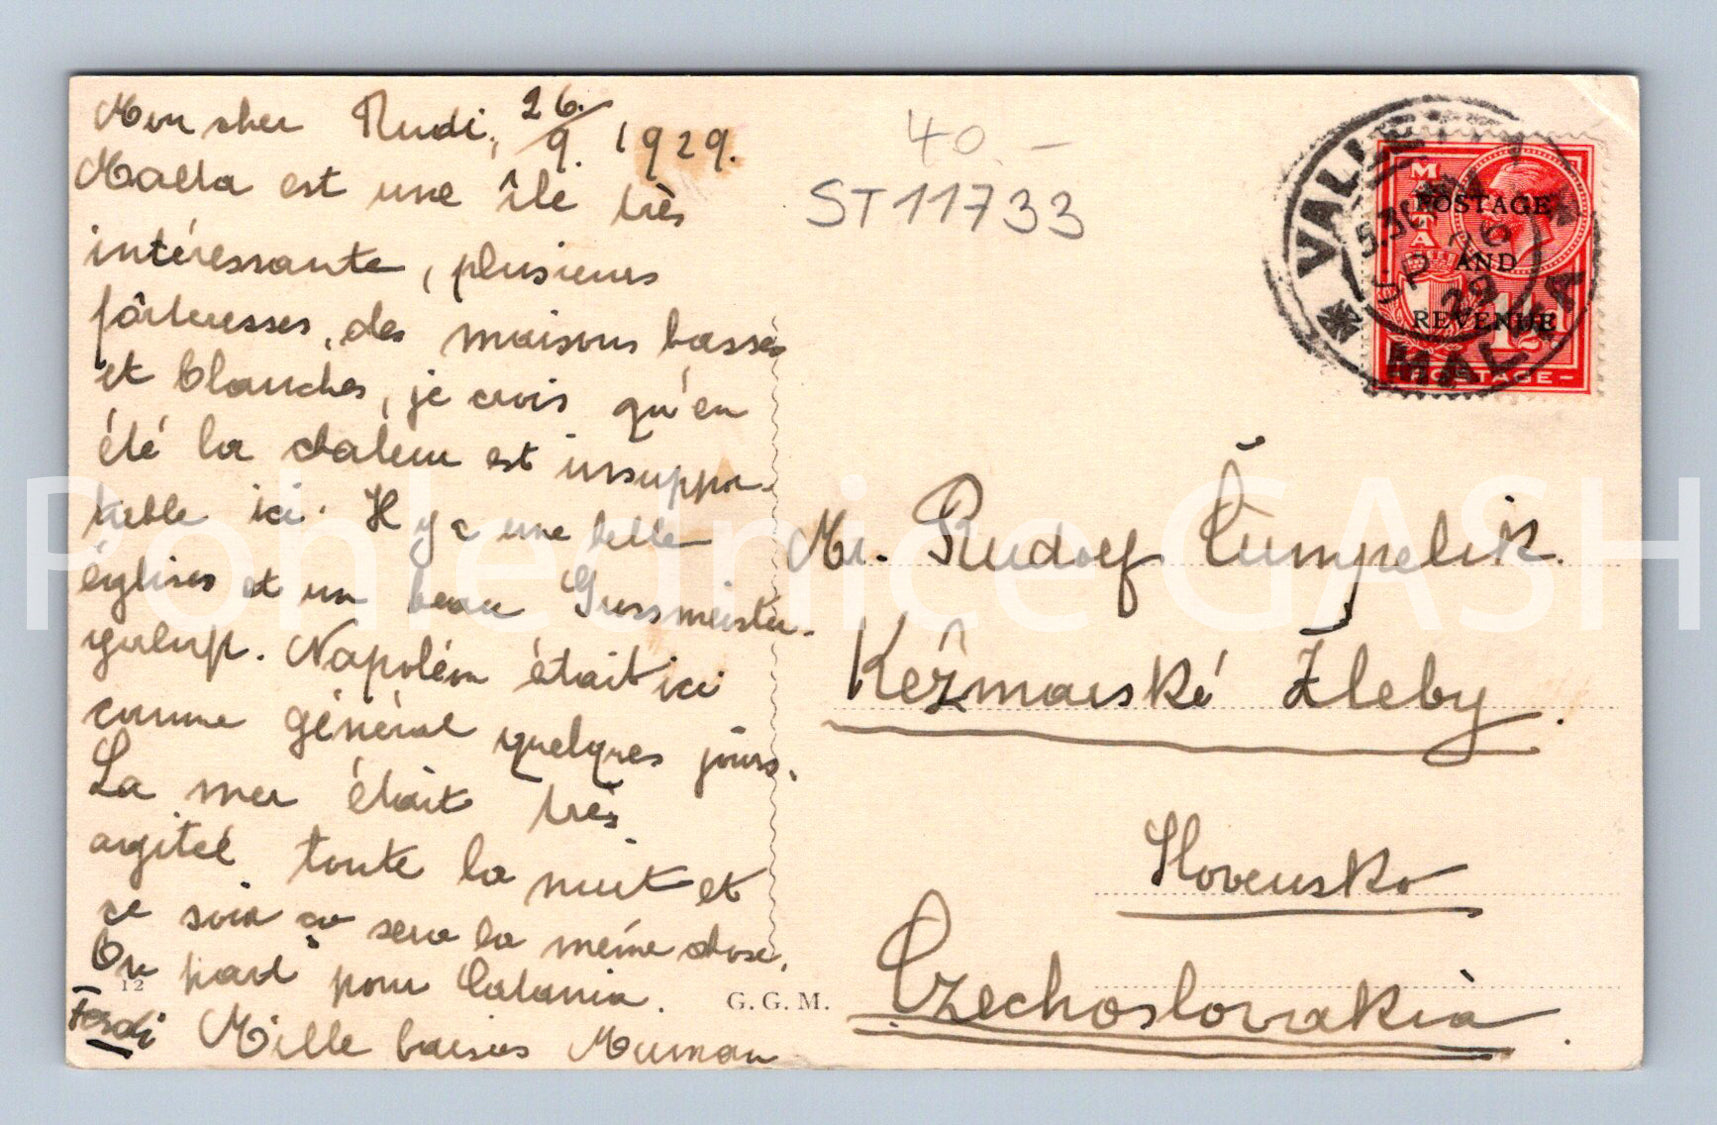 Mon cher Rudi, 26./9. 1929.
Malta est une île très
intéressante, plusieurs
fôrteresses, des maisons basses
et blanches, je crois qu'en
été la chaleur est insuppor-
table ici. Il y a une belle
églises et un beau Grossmeister-
palast. Napoléon était ici
comme général quelques jours.
La mer était très
agiteé toute la nuit et
ce soir ça sera la même chose.
On part pour Catania.
Ferdi Mille baisers Maman
12
G. G. M.
40.-
ST 11733
VALLETTA
5.30 PM
SP 26
29
MALTA
MALTA
POSTAGE
AND
REVENUE
1½
POSTAGE
Mr. Rudolf Čumpelik.
Kežmarské Žleby.
Slovensko
Czechoslovakia.
Pohlednice GASH